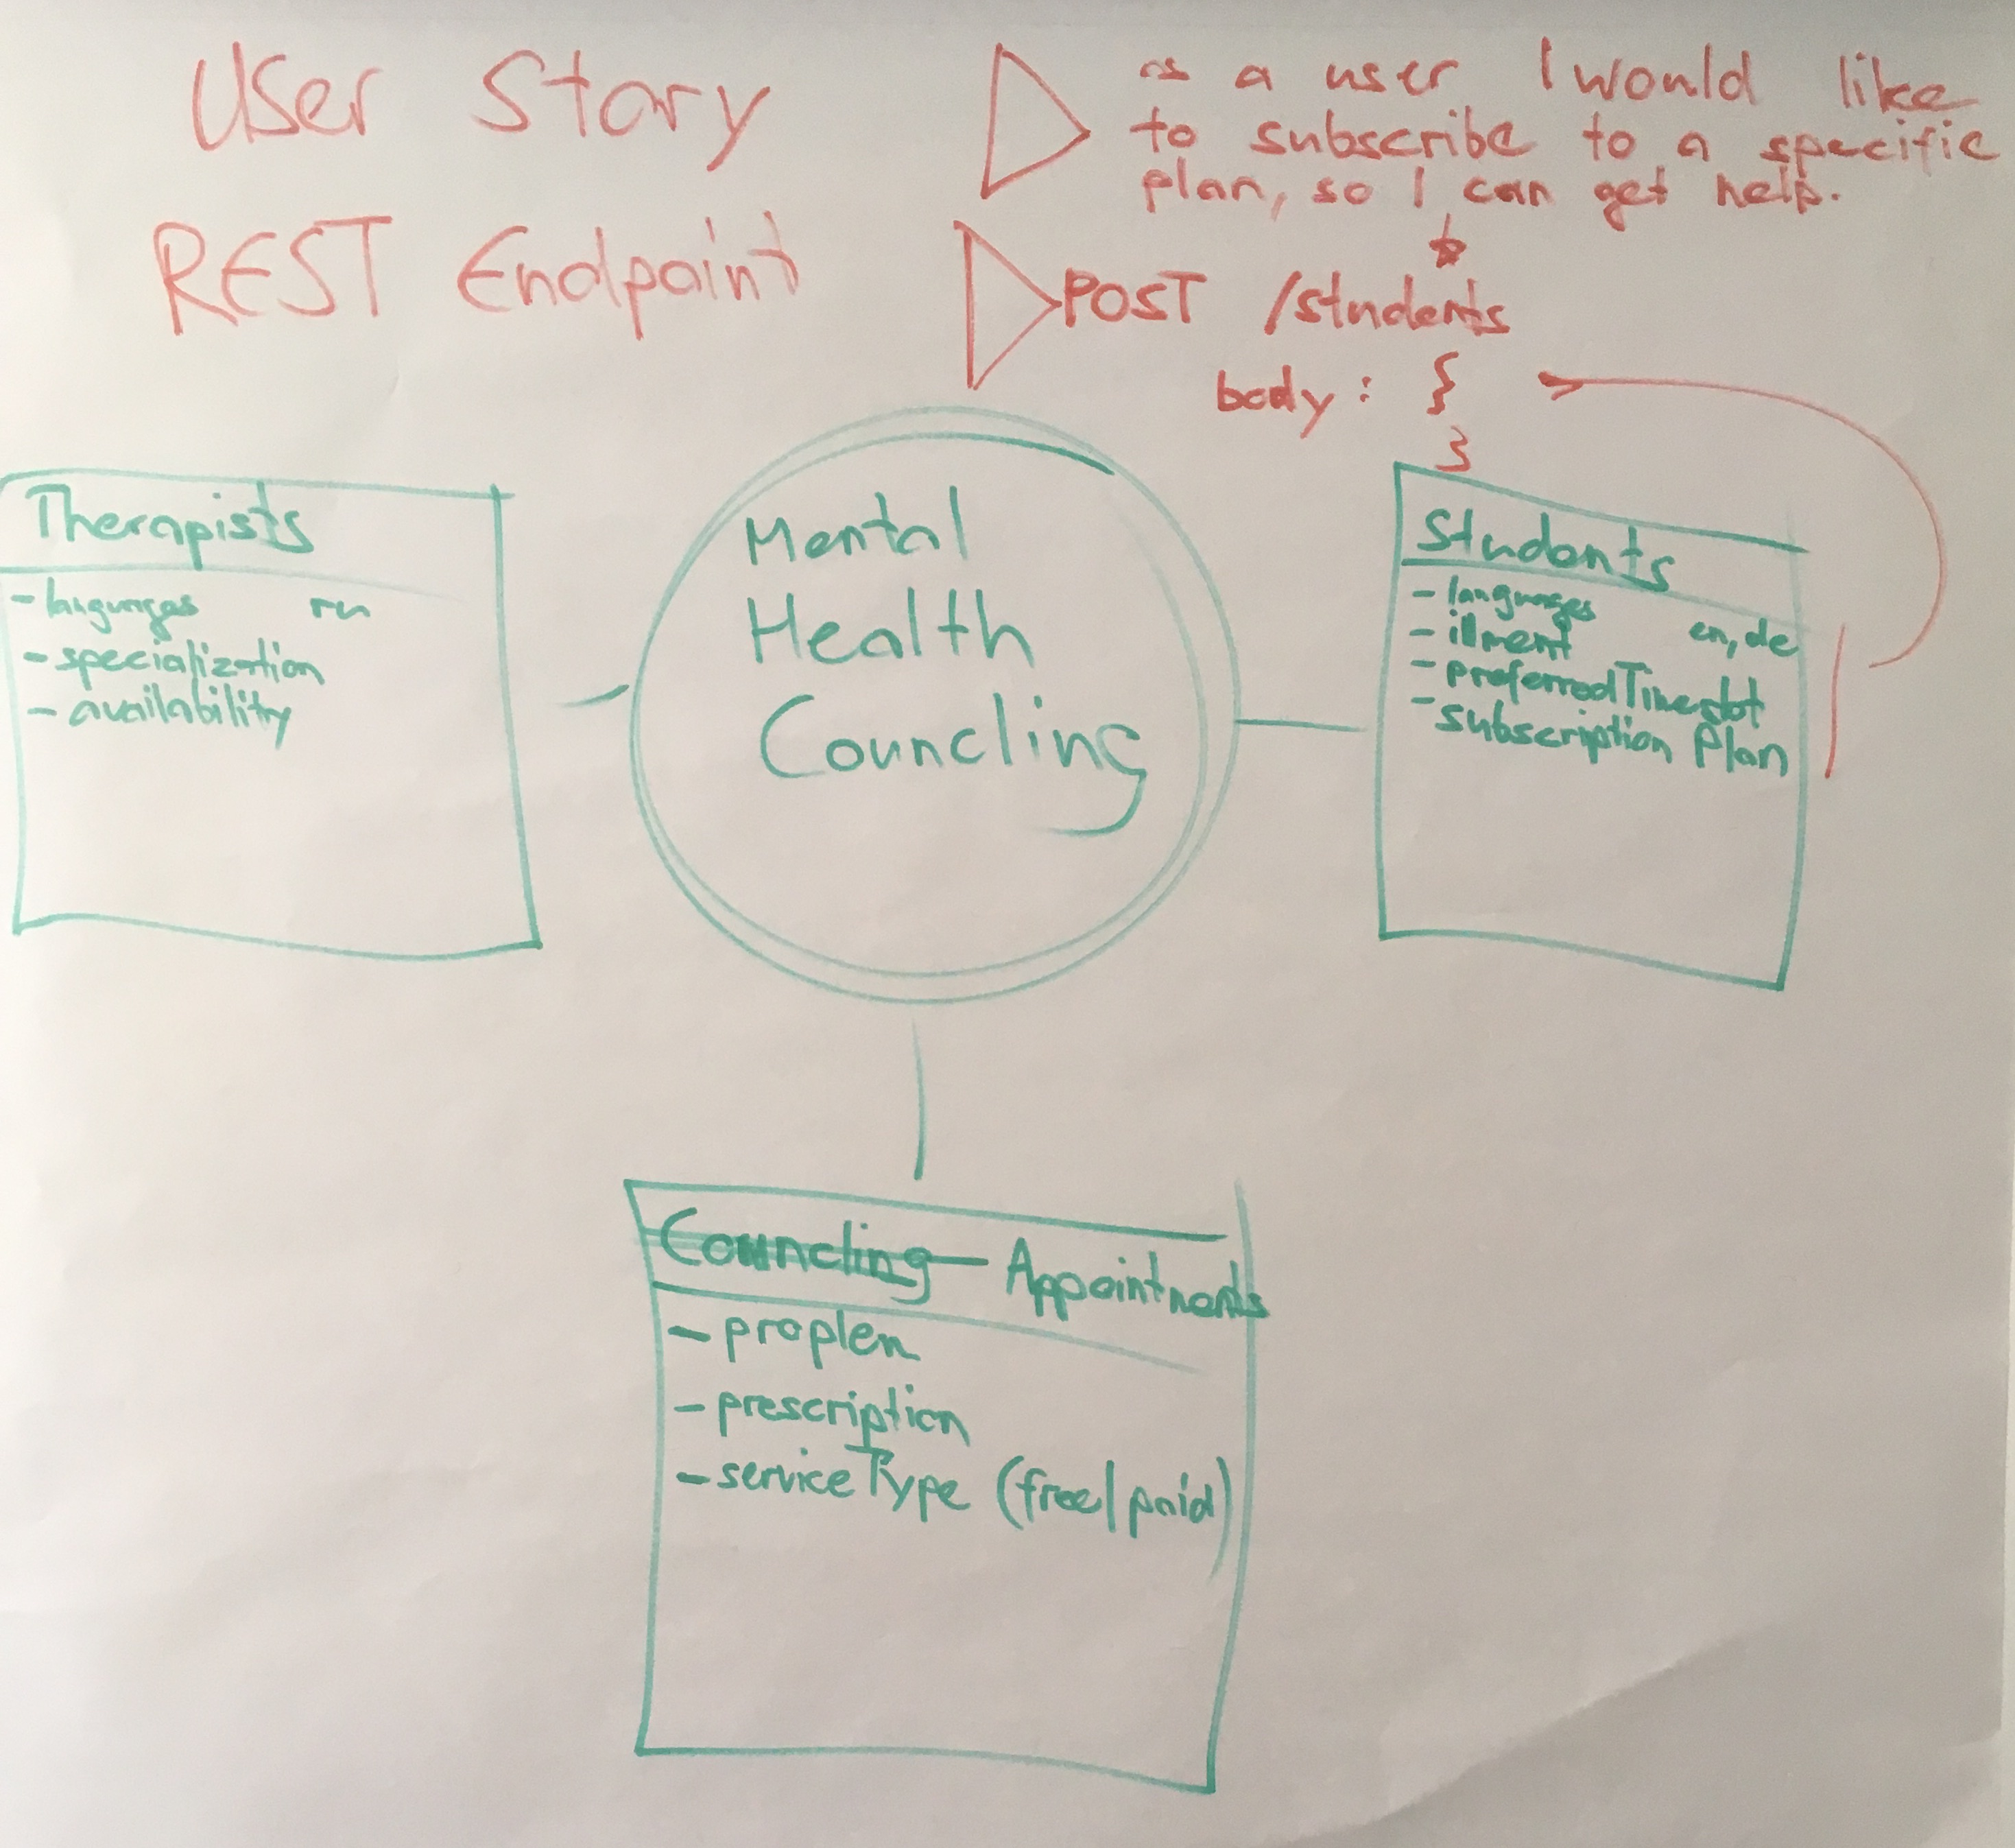 User Story
as a user I would like
to subscribe to a specific
plan, so I can get help.
REST Endpoint
POST /students
body: {
}
Therapists
- languages
- specialization
- availability
Mental
Health
Councling
Students
- languages en, de
- illment
- preferredTimeslot
- subscription Plan
Councling Appointments
- proplem
- prescription
- serviceType (free/paid)